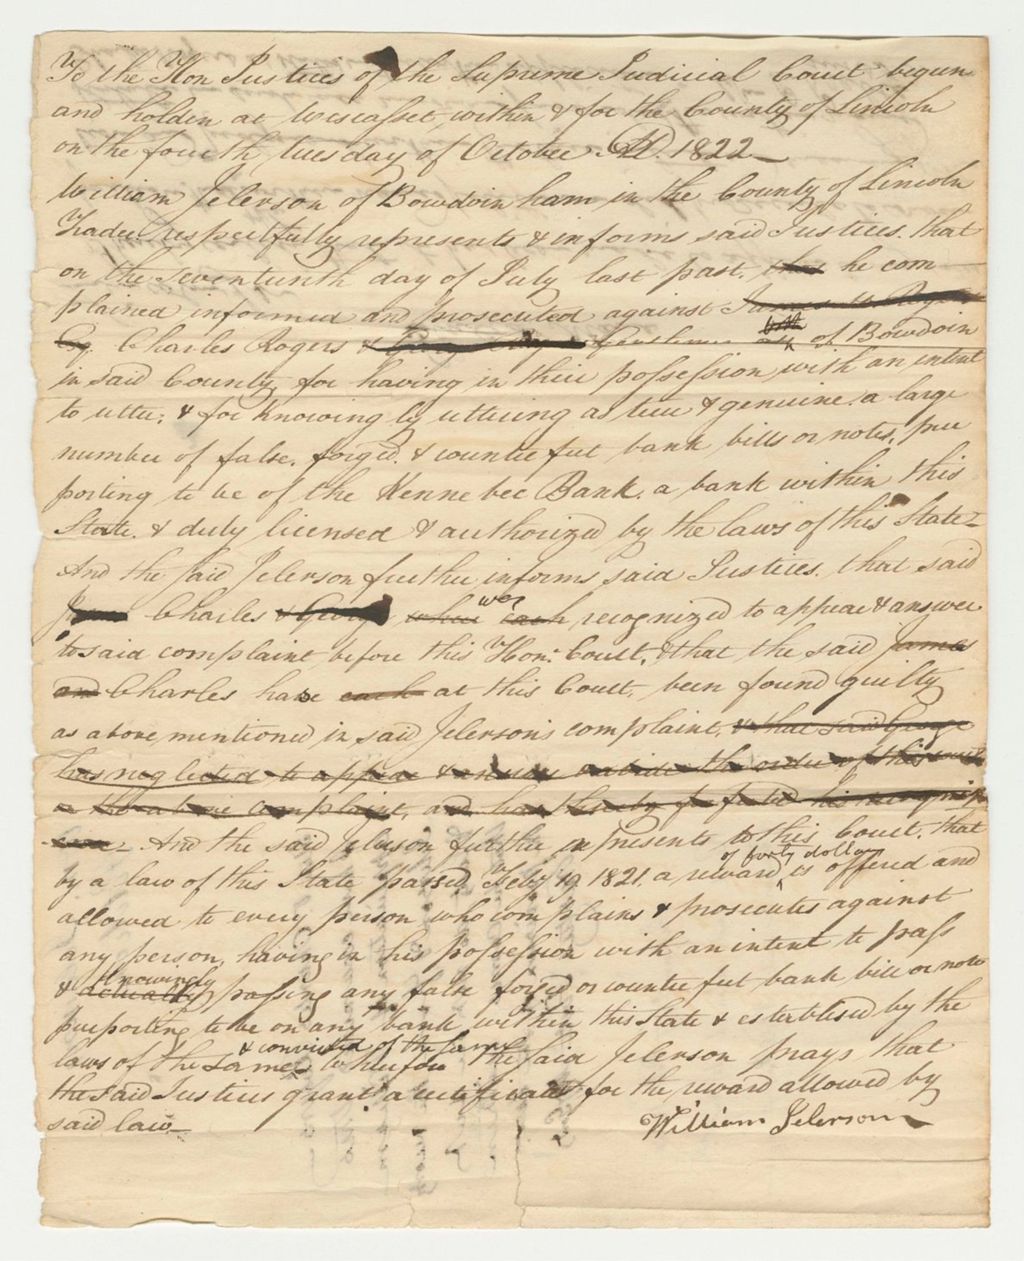 To the Hon Justices of the Supreme Judicial Court begun
and holden at Wiscasset, within & for the County of Lincoln
on the fourth tuesday of October AD. 1822 —
William Jelerson of Bowdoinham in the County of Lincoln
Trader respectfully represents & informs said Justices. that
on the seventeenth day of July last past, that he com
plained informed and prosecuted against James
Esq. Charles Rogers & Gentlemen both of Bowdoin
in said County for having in their possession with an intent
to utter, & for knowingly uttering as true & genuine a large
number of false, forged, & counterfeit bank bills or notes, pur
porting to be of the Kennebec Bank, a bank within this
State. & duly licensed & authorized by the laws of this State —
And the said Jelerson further informs said Justices. that said
James Charles & George was each, recognized to appear & answer
to said complaint before this Hon. Court, & that the said James
and Charles have each at this Court, been found guilty
as above mentioned in said Jelerson's complaint, & that said George
has neglected to appear & answer & abide the order of this
to the above complaint, and has thereby forfeited his recogni
And the said Jelerson further represents to this Court, that
by a law of this State passed Feby 19 1821, a reward of forty dollars is offered and
allowed to every person who complains & prosecutes against
any person, having in his possession with an intent to pass
& actually knowingly passing any false forged or counterfeit bank bill or note
purporting to be on any bank within this State & established by the
laws of the same & convicted of the same Wherefore the said Jelerson prays that
the said Justices grant a certificate for the reward allowed by
said law —
William Jelerson